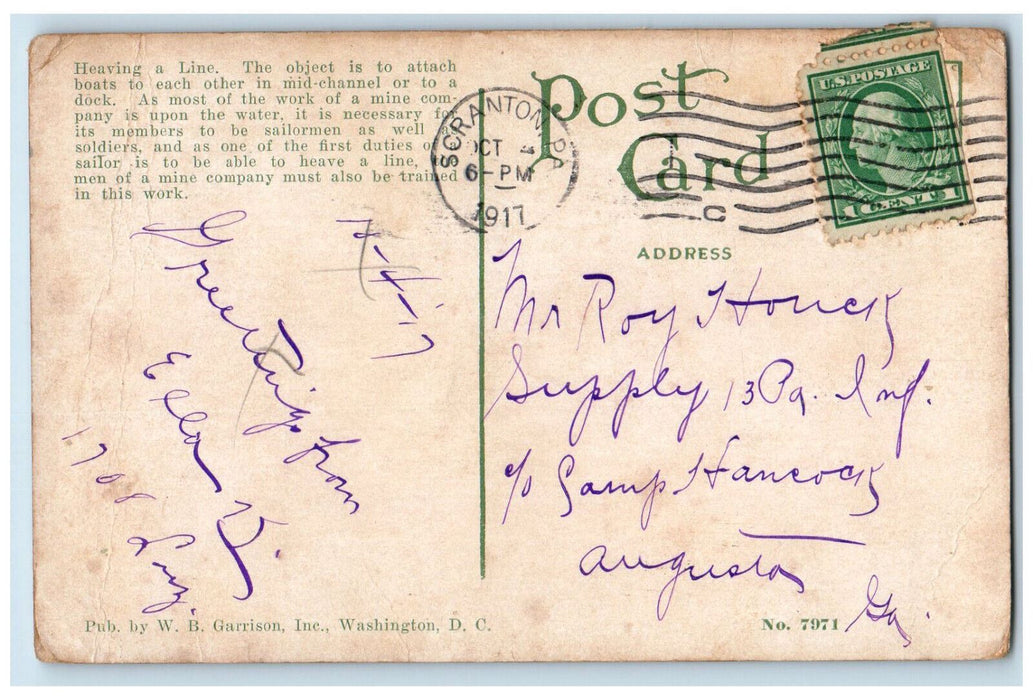 Heaving a Line. The object is to attach
boats to each other in mid-channel or to a
dock. As most of the work of a mine com-
pany is upon the water, it is necessary for
its members to be sailormen as well
soldiers, and as one of the first duties of
sailor is to be able to heave a line,
men of a mine company must also be trained
in this work.
Post
Card
SCRANTON, PA
OCT 4
6-PM
1917
C
U.S. POSTAGE
1 CENT 1
ADDRESS
Mr Roy Houck
Supply 13 Pa. Inf.
c/o Camp Hancock
Augusta
Ga.
Greetings from
Ella K.
1708
Pub. by W. B. Garrison, Inc., Washington, D. C.
No. 7971